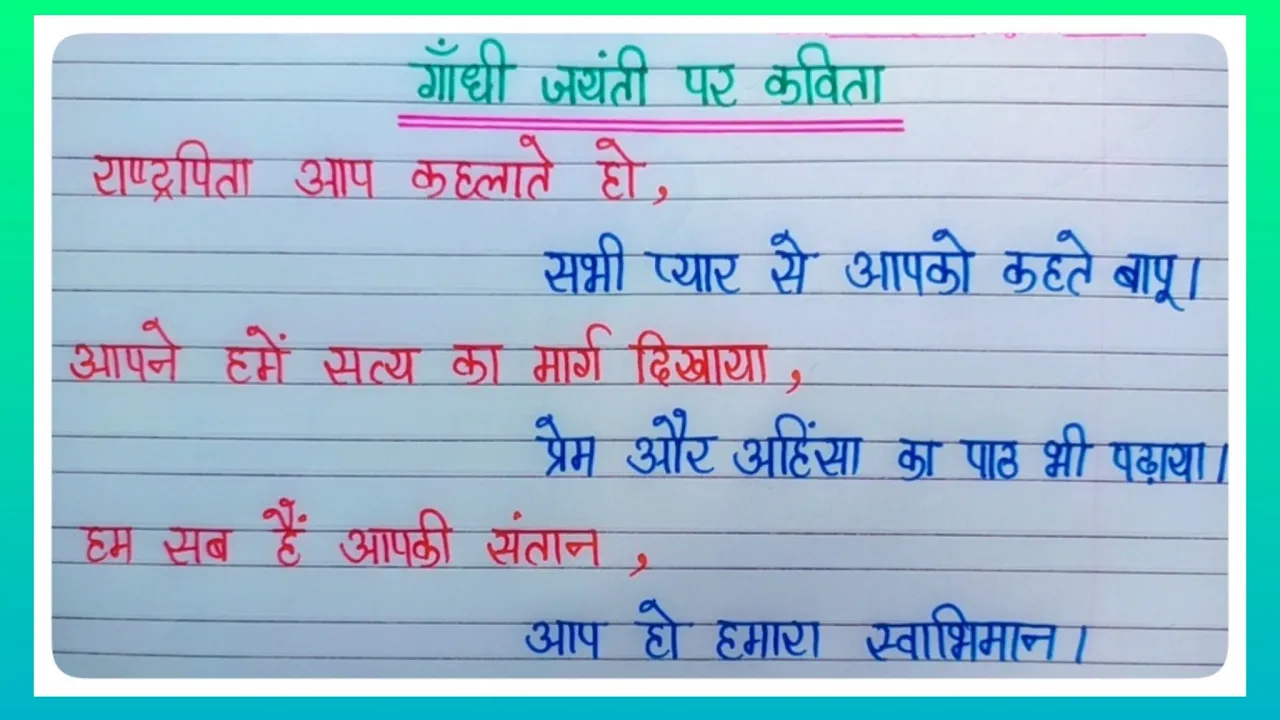 गाँधी जयंती पर कविता
राष्ट्रपिता आप कहलाते हो,
सभी प्यार से आपको कहते बापू।
आपने हमें सत्य का मार्ग दिखाया,
प्रेम और अहिंसा का पाठ भी पढ़ाया।
हम सब हैं आपकी संतान,
आप हो हमारा स्वाभिमान।